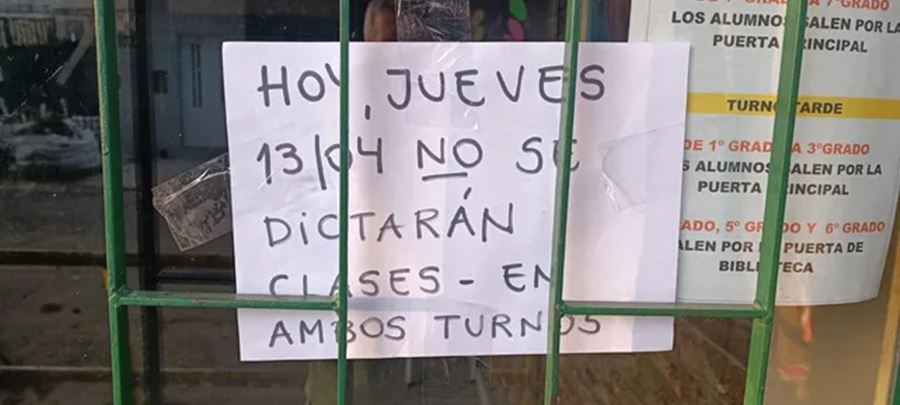 HOY, JUEVES
13/04 NO SE
DICTARÁN
CLASES - EN
AMBOS TURNOS
7° GRADO
LOS ALUMNOS SALEN POR LA
PUERTA PRINCIPAL
TURNO TARDE
DE 1° GRADO A 3°GRADO
ALUMNOS SALEN POR LA
PUERTA PRINCIPAL
5° GRADO Y 6° GRADO
SALEN POR PUERTA DE
BIBLIOTECA